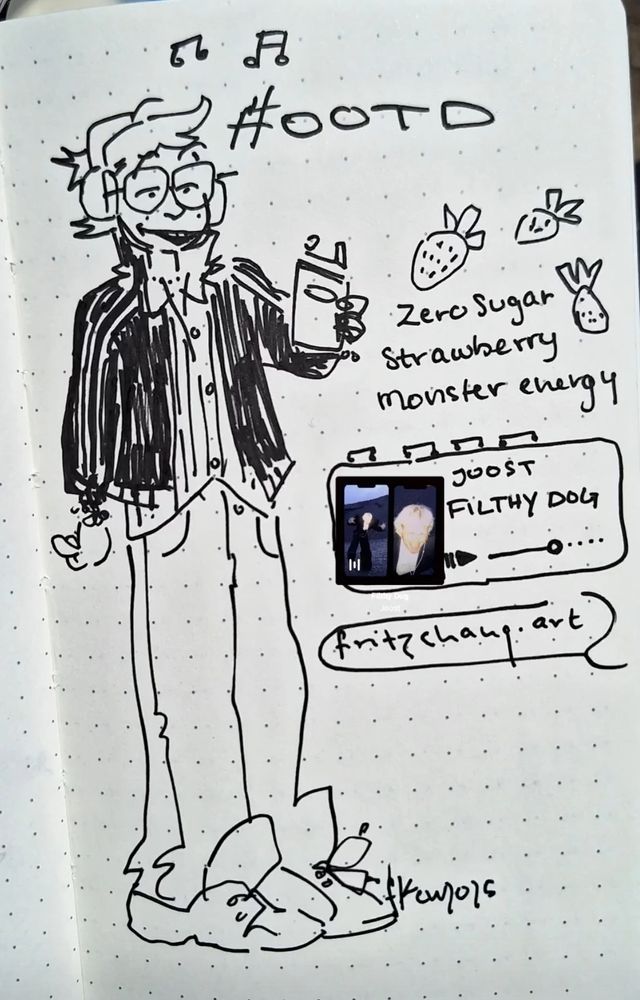 #OOTD
Zero Sugar
Strawberry
monster energy
JOOST
FILTHY DOG
Filthy Dog
Joost
fritzchang.art